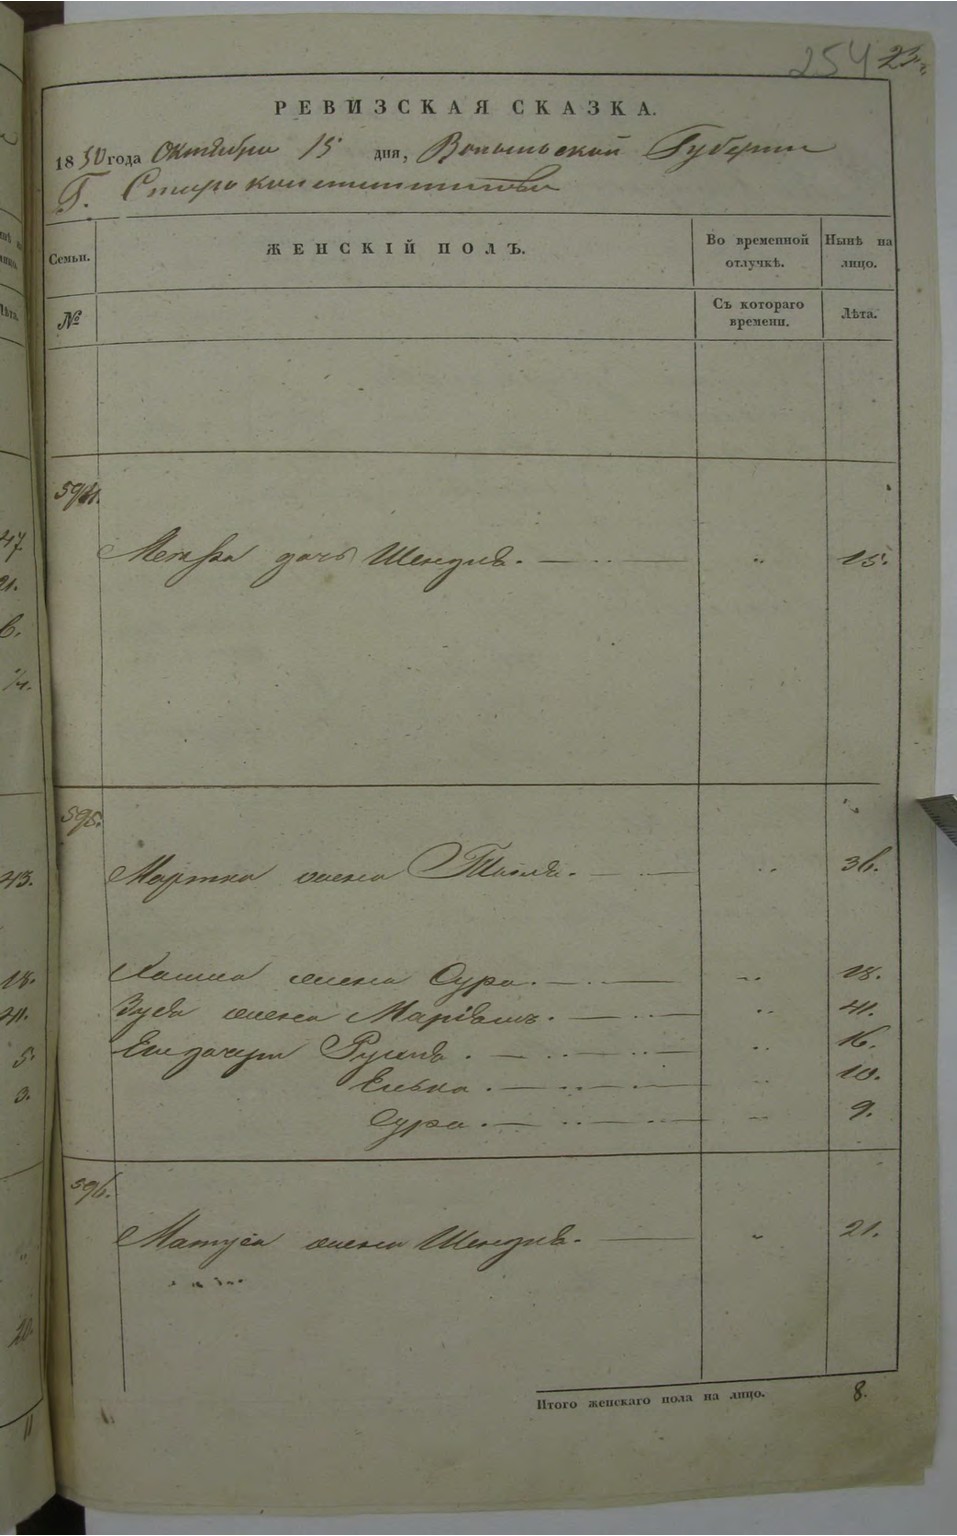 254
РЕВИЗСКАЯ СКАЗКА.
1850 года Октября 15 дня, Волынской Губернии
Г. Староконстантинова
Семьи. ЖЕНСКІЙ ПОЛЪ. Во временной отлучкѣ. Нынѣ на лицо.
№ Съ котораго времени. Лѣта.
594.
дочь Шендля. 15.
595.
47.
21.
6.
Мортка жена 36.
43.
Хаима жена Сура. 18.
18.
Зуся жена Маріасъ. 41.
41.
Его дочери Рухля. 16.
5.
Енька. 10.
3.
Сура. 9.
596.
Матуса жена Шендля. 21.
20.
Итого женскаго пола на лицо. 8.
11